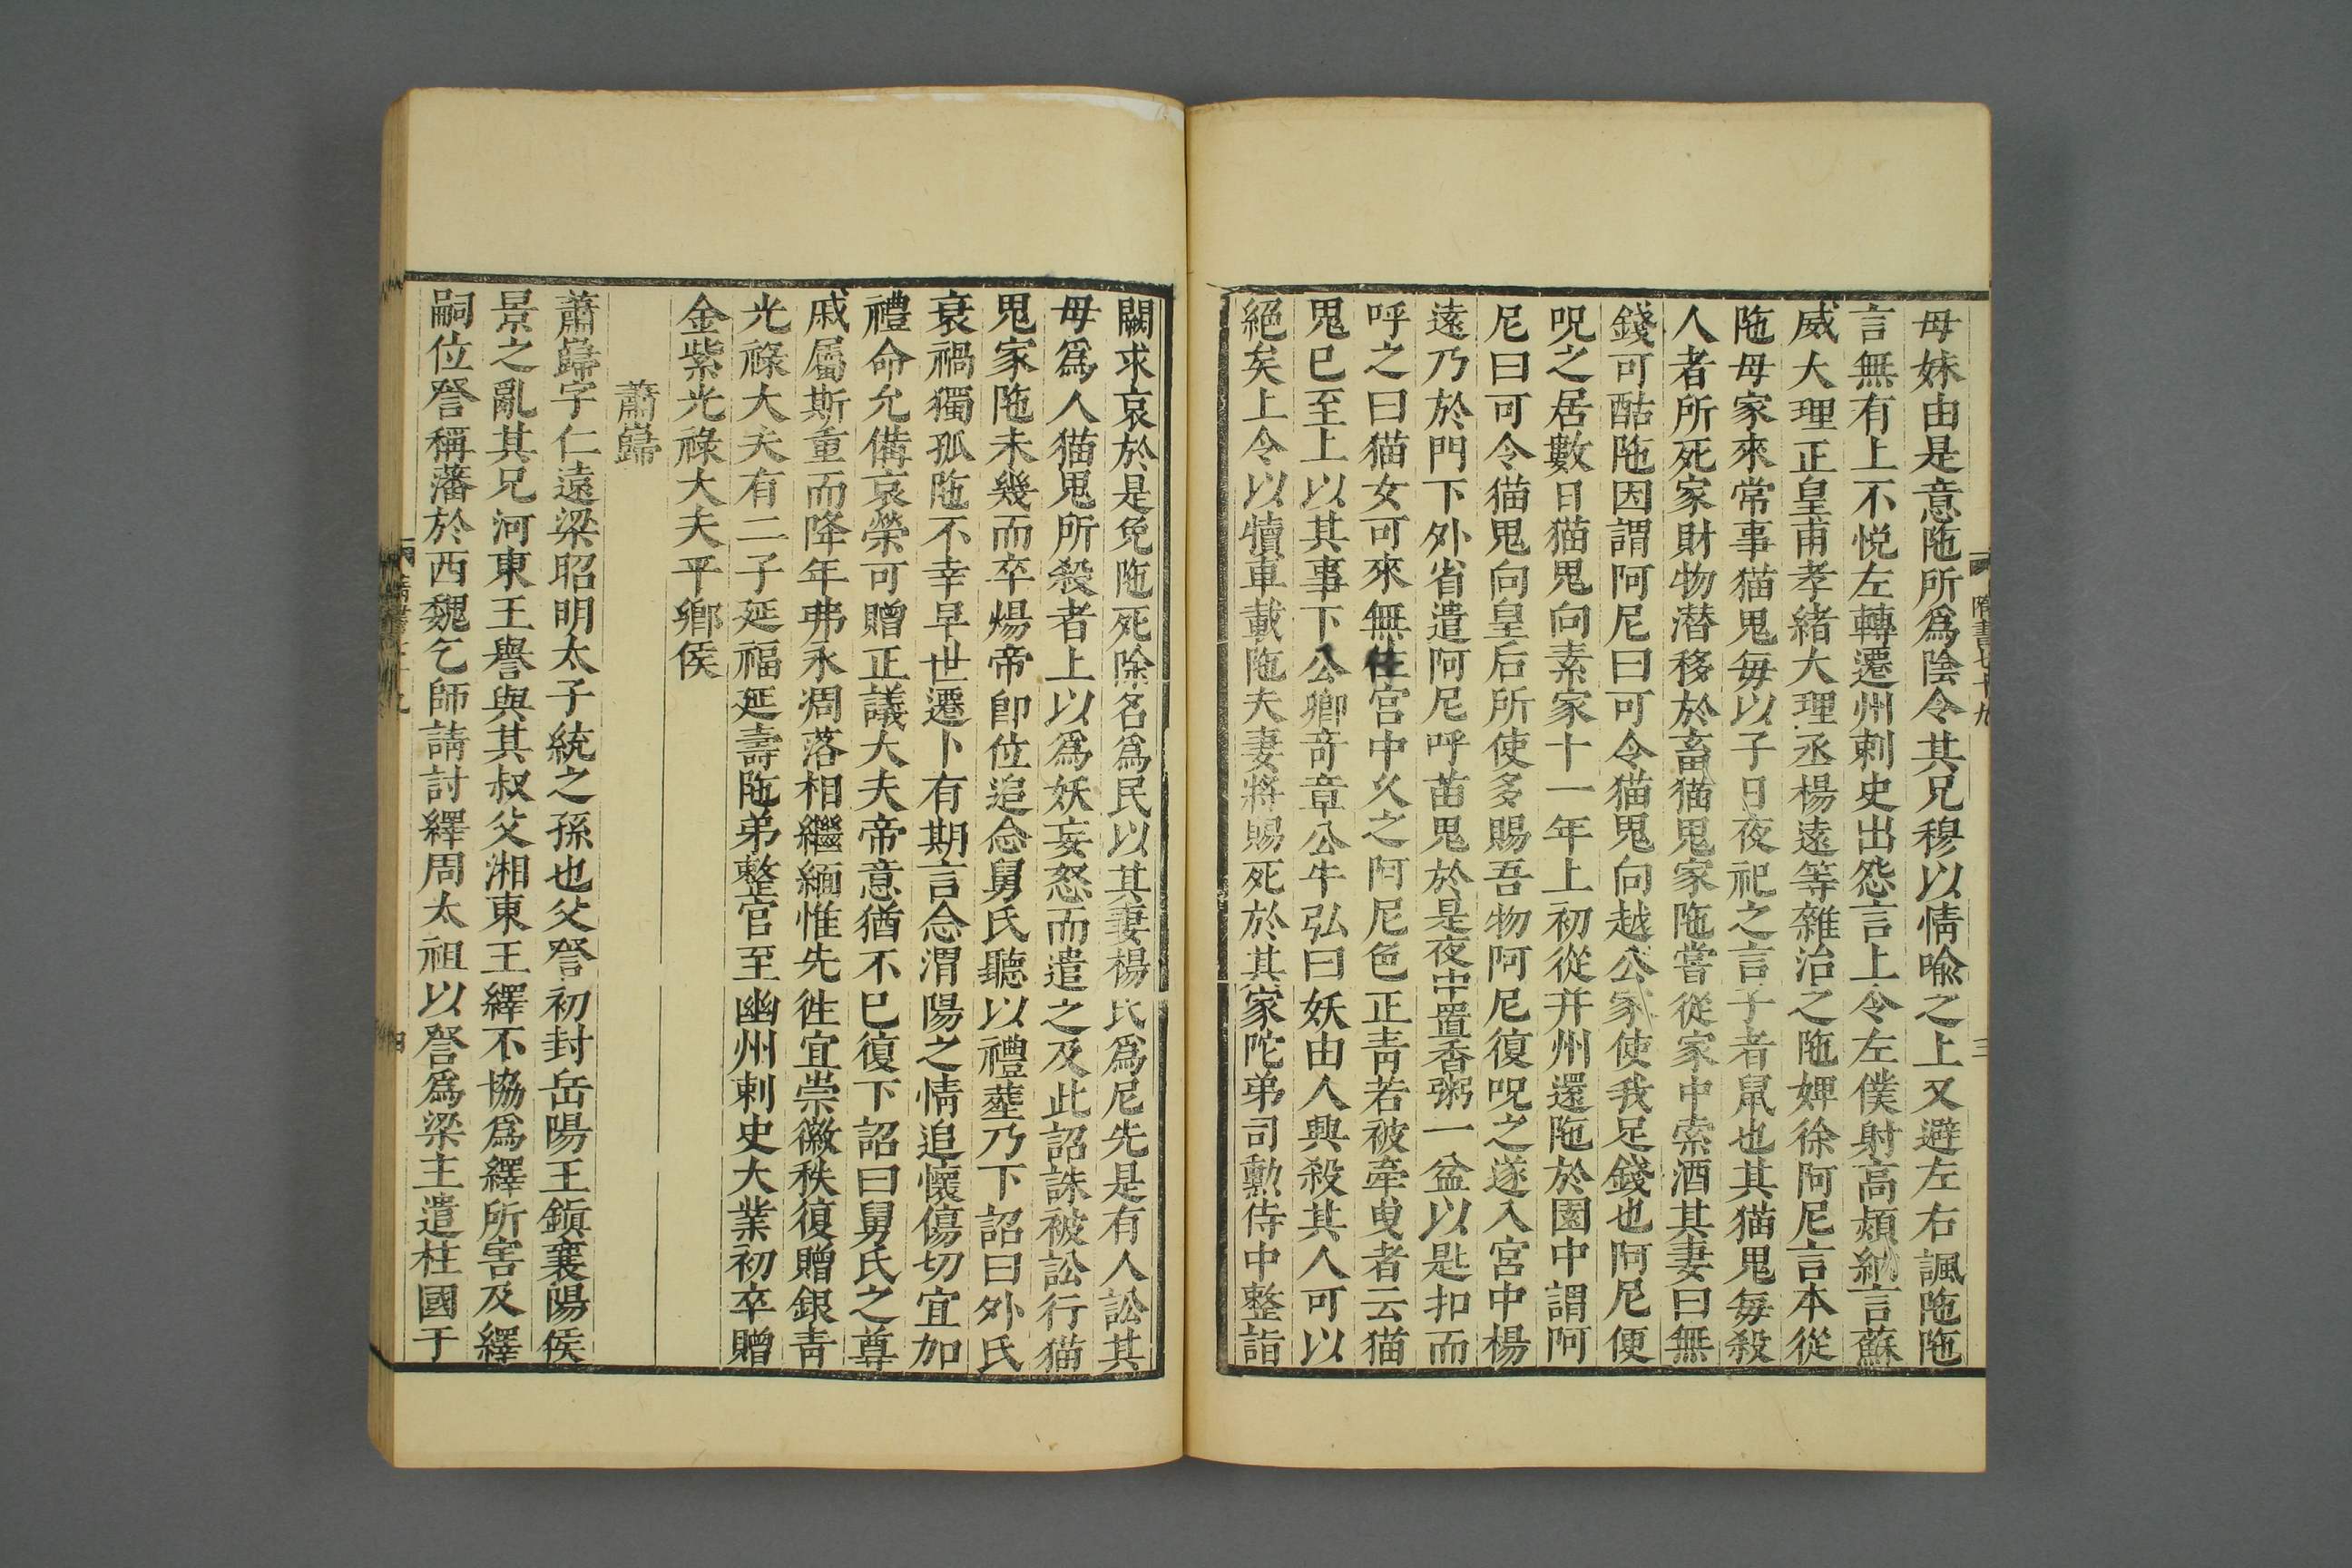 母妹由是意陁所爲陰令其兄穆以情喩之上又避左右諷陁陁
言無有上不悦左轉遷州刺史出怨言上令左僕射高熲納言蘇
威大理正皇甫孝緒大理丞楊遠等雜治之陁婢徐阿尼言本從
陁母家來常事猫鬼每以子日夜祀之言子者鼠也其猫鬼每殺
人者所死家財物潜移於畜猫鬼家陁嘗從家中索酒其妻曰無
錢可酤陁因謂阿尼曰可令猫鬼向越公家使我足錢也阿尼便
呪之居數日猫鬼向素家十一年上初從并州還陁於園中謂阿
尼曰可令猫鬼向皇后所使多賜吾物阿尼復呪之遂入宮中楊
遠乃於門下外省遣阿尼呼苗鬼於是夜中置香粥一盆以匙扣而
呼之曰猫女可來無住宮中久之阿尼色正靑若被牽曳者云猫
鬼巳至上以其事下公卿竒章公牛弘曰妖由人興殺其人可以
絕矣上令以犢車載陁夫妻將賜死於其家陀弟司勲侍中整詣
闕求哀於是免陁死除名爲民以其妻楊氏爲尼先是有人訟其
母爲人猫鬼所殺者上以爲妖妄怒而遣之及此詔誅被訟行猫
鬼家陁未幾而卒煬帝卽位追念舅氏聽以禮葬乃下詔曰外氏
衰禍獨孤陁不幸早世遷卜有期言念渭陽之情追懷傷切宜加
禮命允備哀榮可贈正議大夫帝意猶不巳復下詔曰舅氏之尊
戚屬斯重而降年弗永凋落相繼緬惟先徃宜崇徽秩復贈銀靑
光祿大夫有二子延福延壽陁弟整官至幽州刺史大業初卒贈
金紫光祿大夫平鄕侯
蕭巋
蕭巋字仁遠梁昭明太子統之孫也父詧初封岳陽王鎭襄陽侯
景之亂其兄河東王譽與其叔父湘東王繹不協爲繹所害及繹
嗣位詧稱藩於西魏乞師請討繹周太祖以詧爲梁主遣柱國于
隋書七十九
三
四